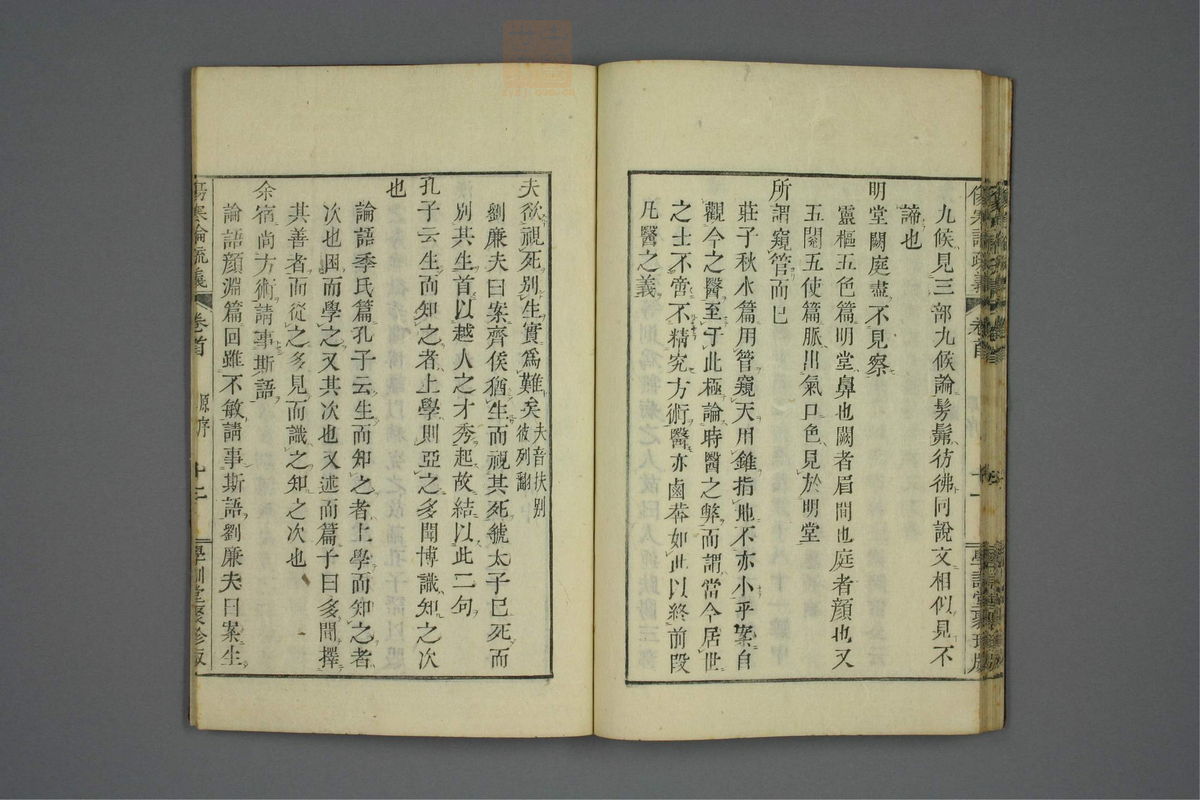 傷寒論疏義　卷首　十一　學訓堂聚珍版
九候見三部九候論髣髴彷彿同說文相似見不
諦也
明堂闕庭盡不見察
靈樞五色篇明堂鼻也闕者眉間也庭者顏也又
五閱五使篇脈出氣口色見於明堂
所謂窺管而已
莊子秋水篇用管窺天用錐指地不亦小乎案自
觀今之醫至于此極論時醫之弊而謂當今居世
之士不啻不精究方術醫亦鹵莽如此以終前段
凡醫之義
夫欲視死別生實爲難矣夫音扶別彼列翻
劉廉夫曰案齊侯猶生而視其死虢太子已死而
別其生首以越人之才秀起故結以此二句
孔子云生而知之者上學則亞之多聞博識知之次
也
論語季氏篇孔子云生而知之者上學而知之者
次也困而學之又其次也又述而篇子曰多聞擇
其善者而從之多見而識之知之次也
余宿尚方術請事斯語
論語顏淵篇回雖不敏請事斯語劉廉夫曰案生
傷寒論疏義　卷首　原序　十二　學訓堂聚珍版